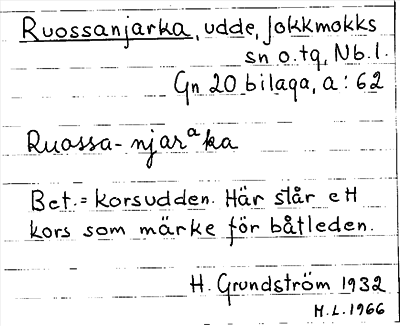 Ruossanjarka, udde, Jokkmokks
sn o. tg, Nb. l.
Gn 20 bilaga, a: 62
Ruossa-njarᵃka
Bet.= korsudden. Här står ett
kors som märke för båtleden.
H. Grundström 1932
H.L. 1966